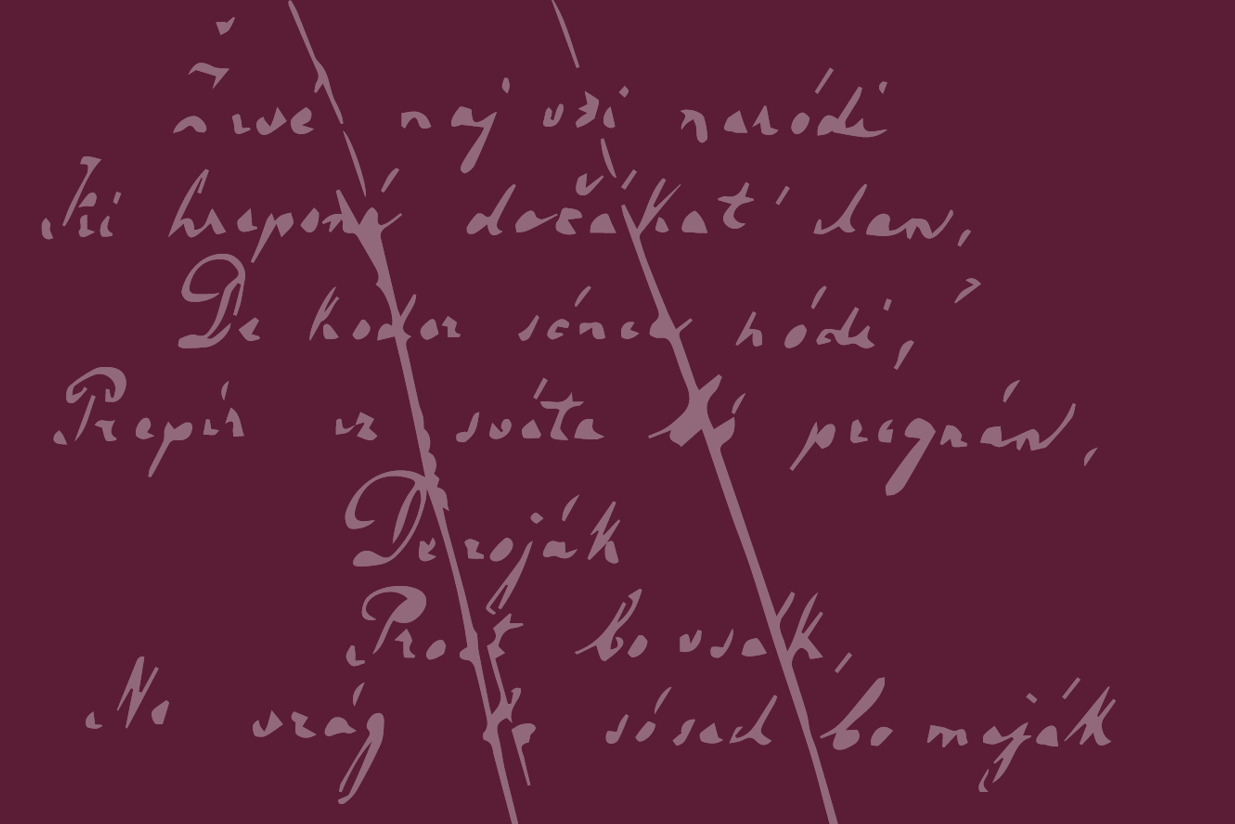 Živé naj vsi naródi
Ki hrepené dočakat' dan,
De koder sónce hódi,
Prepír iz svéta bó pregnán,
De roják
Prost bo vsak,
Ne vrág le sósed bo meják